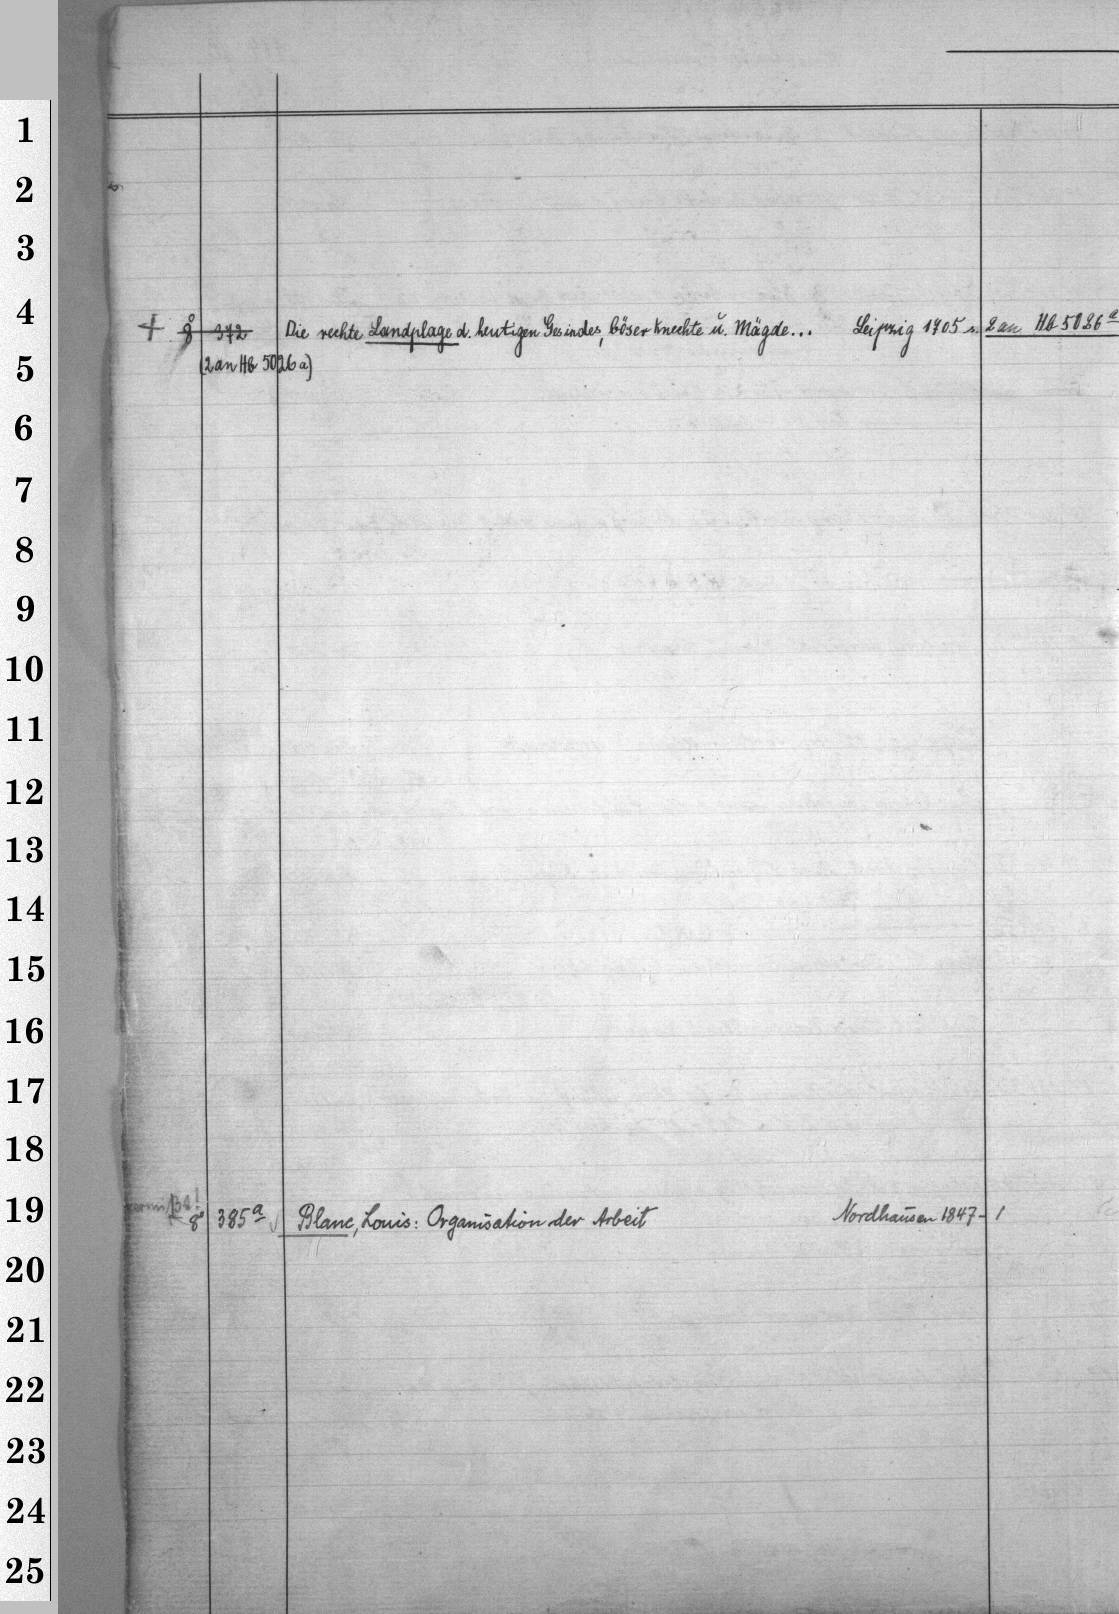 1
2
3
4
+ 8° 372 Die rechte Landplage d. heutigen Gesindes, böser Knechte u. Mägde... Leipzig 1705 2 an Hb 5026 a
5
(2 an Hb 5026 a)
6
7
8
9
10
11
12
13
14
15
16
17
18
19
8° 385a Blanc, Louis: Organisation der Arbeit Nordhausen 1847 - 1
20
21
22
23
24
25